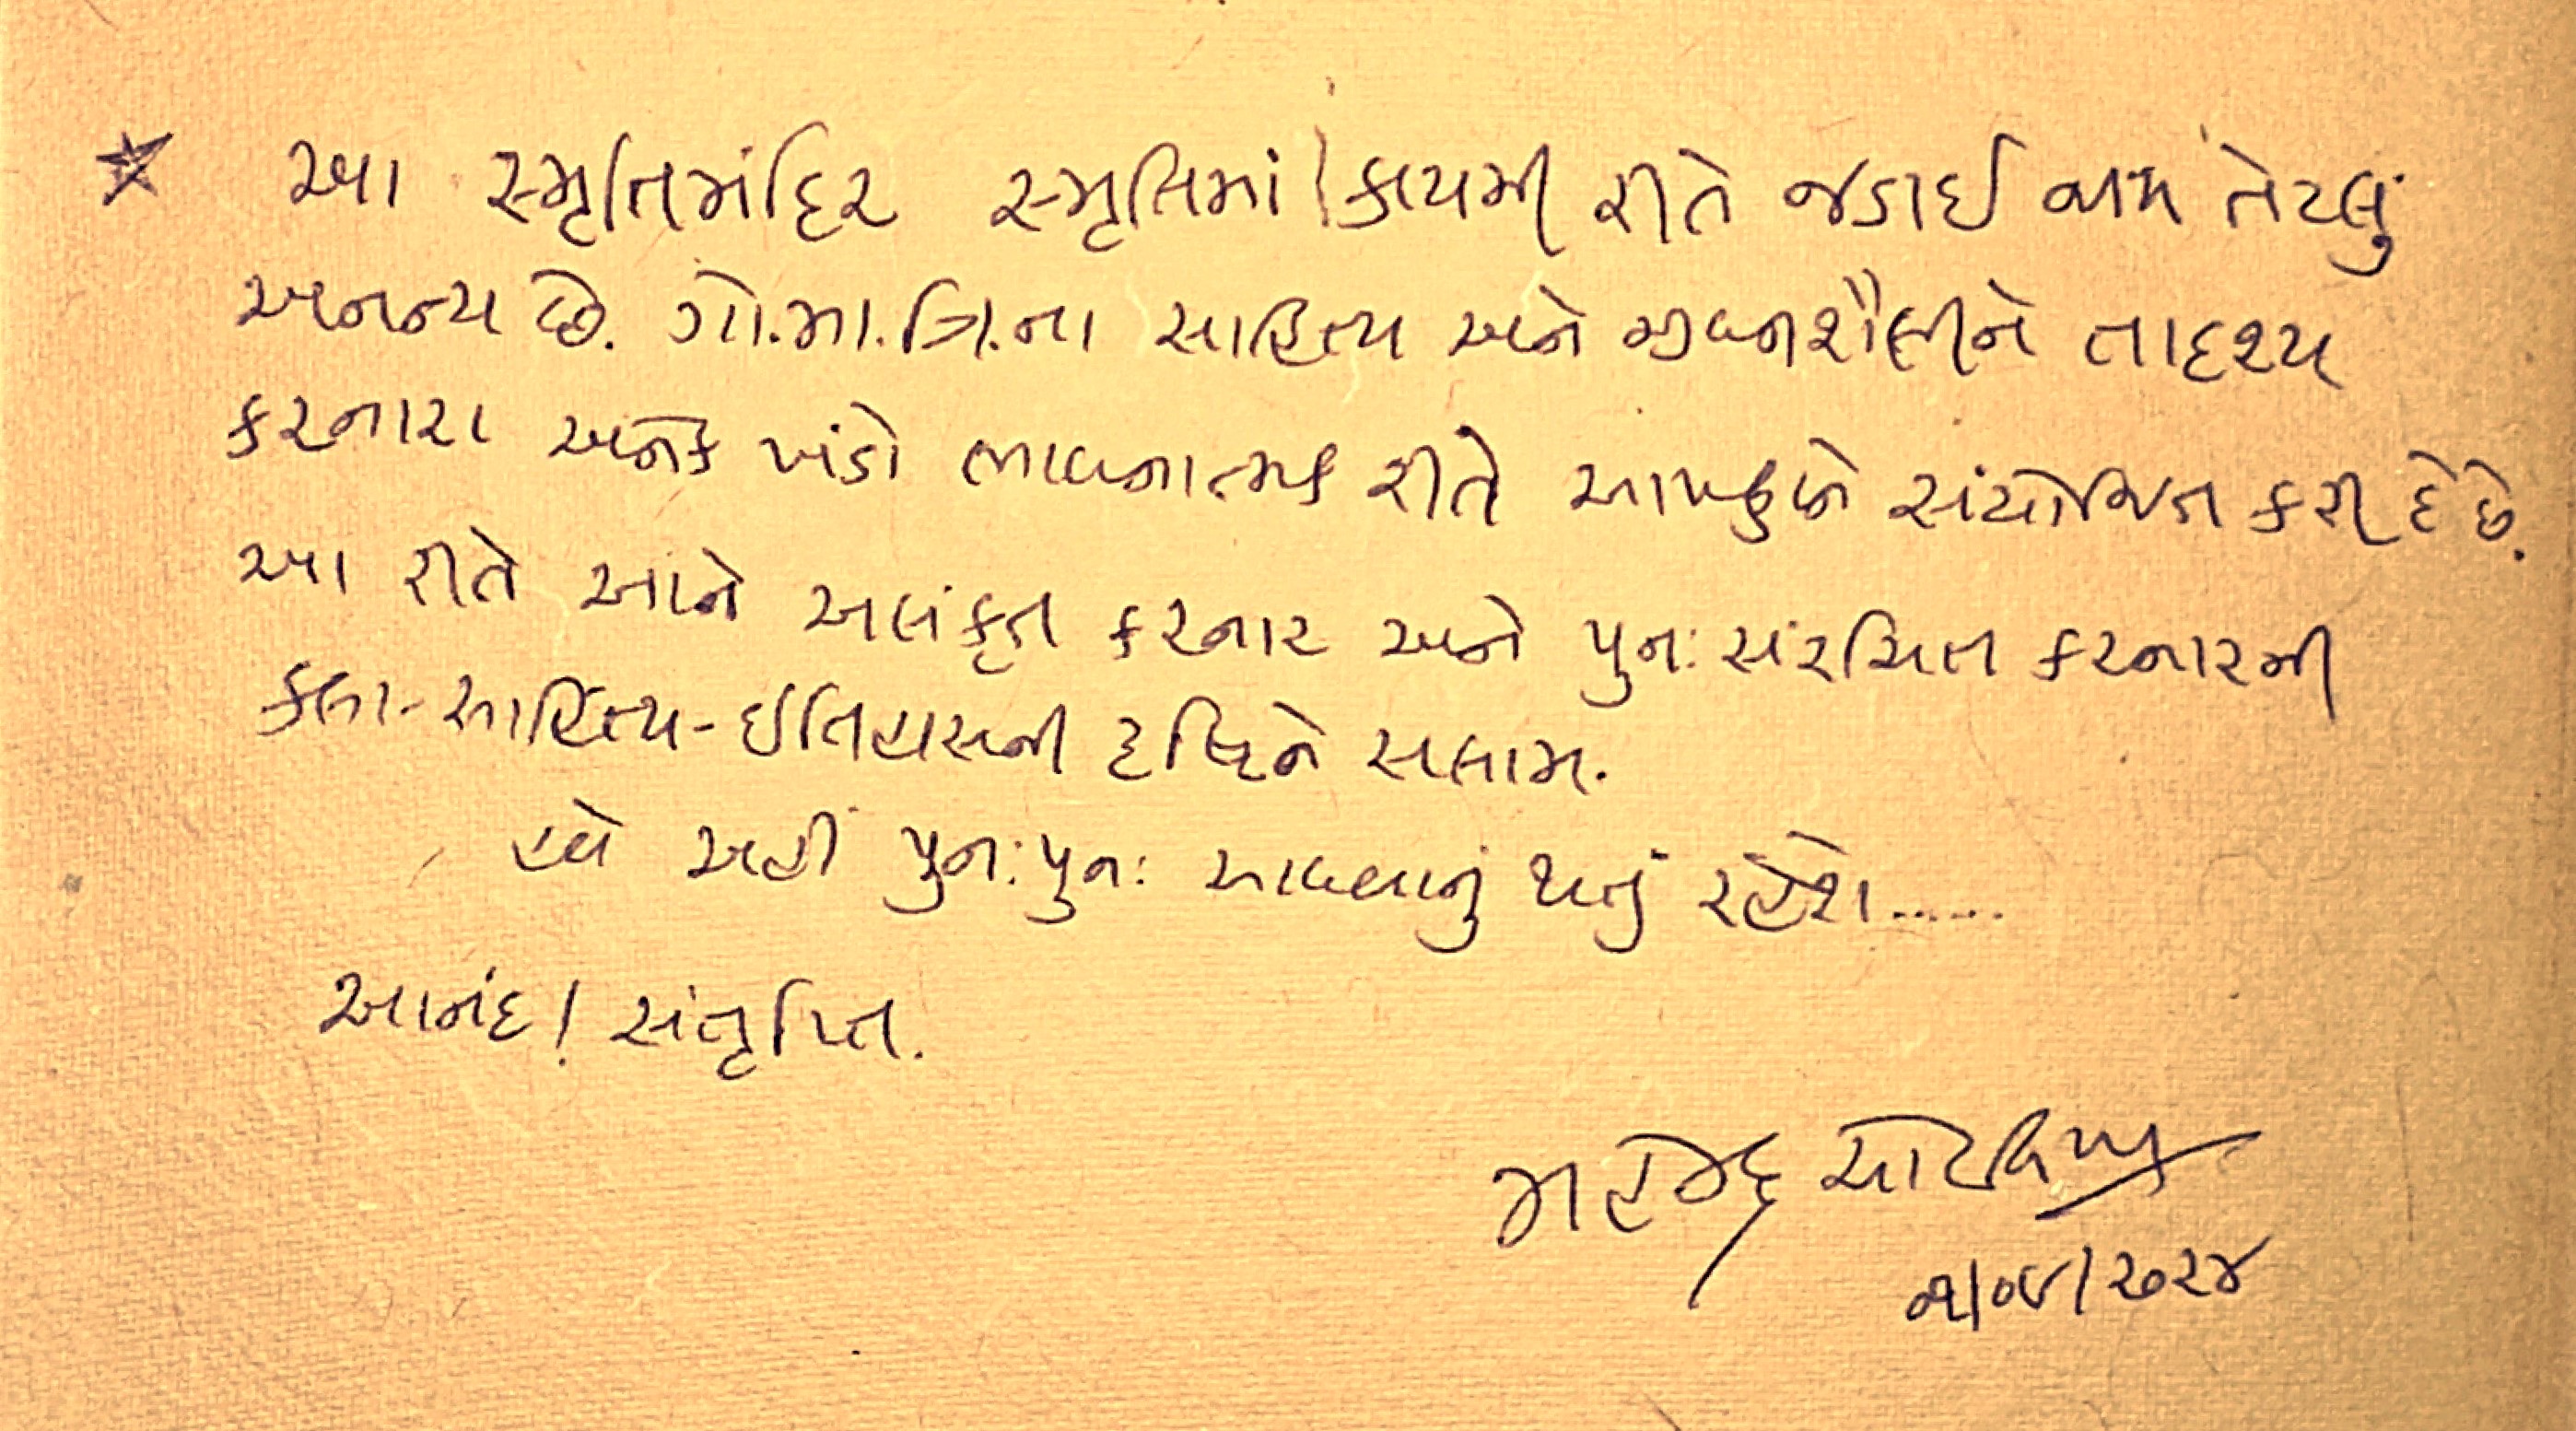 આ સ્મૃતિમંદિર સ્મૃતિમાં કાયમી રીતે જડાઈ જાય તેટલું
અનન્ય છે. ગો.મા.ત્રિ.ના સાહિત્ય અને જીવનશૈલીને તાદૃશ્ય
કરનારા અનેક ખંડો ભાવનાત્મક રીતે આપણને સંયોજિત કરી દે છે.
આ રીતે આને અલંકૃત કરનાર અને પુનઃસંરચિત કરનારની
કલા-સાહિત્ય-ઈતિહાસની દૃષ્ટિને સલામ.
હવે અહીં પુનઃપુનઃ આવવાનું થતું રહેશે......
આનંદ! સંતૃપ્તિ.
૦૧/૦૪/૨૦૨૪